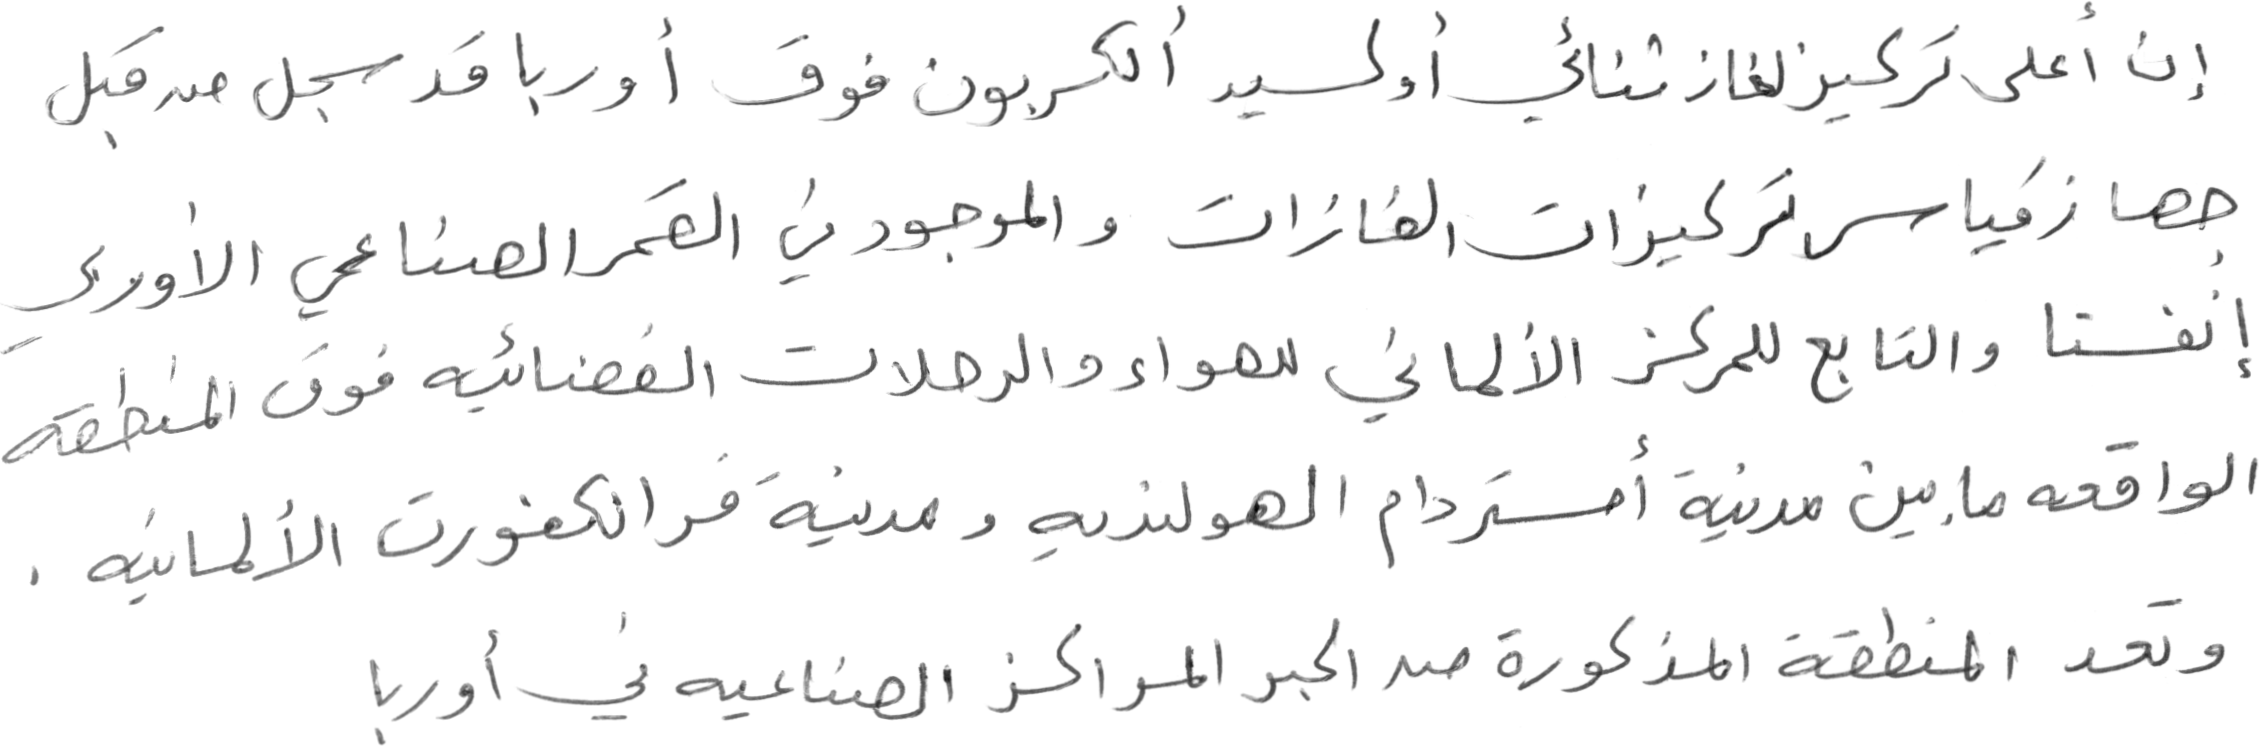 إن أعلى تركيز لغاز ثنائي أوكسيد ألكربون فوق أوربا قد سجل من قبل
جهاز قياس تركيزات الغازات والموجود في القمر الصناعي الأوربي
إنفستا والتابع للمركز الألماني للهواء والرحلات الفضائيه فوق المنطقه
الواقعه مابين مدينة أمستردام الهولنديه ومدينة فرانكفورت الألمانيه .
وتعد المنطقة المذكورة من اكبر المراكز الصناعيه في أوربا